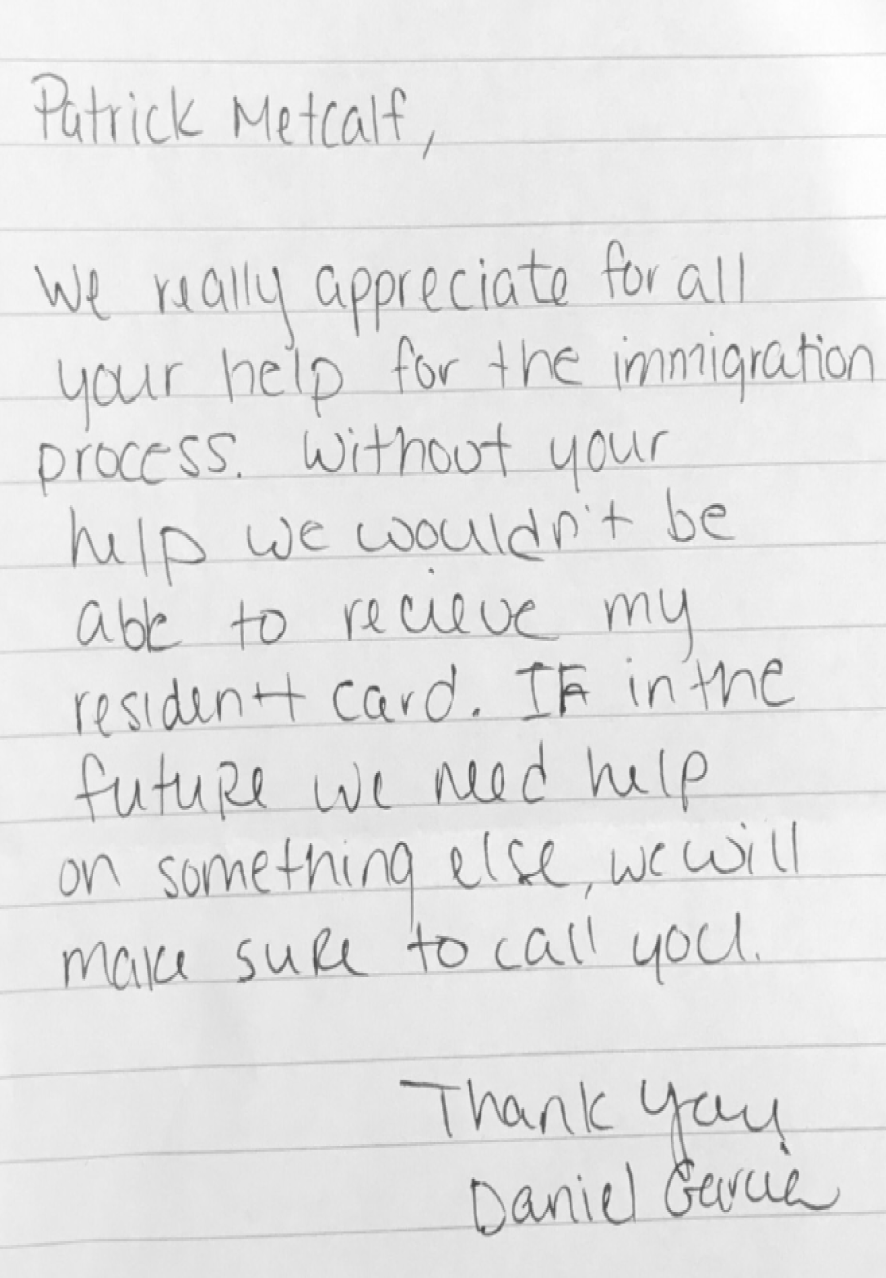 Patrick Metcalf,
We really appreciate for all
your help for the immigration
process. Without your
help we wouldn't be
able to recieve my
resident card. IF in the
future we need help
on something else, we will
make sure to call you.
Thank you
Daniel Garcia